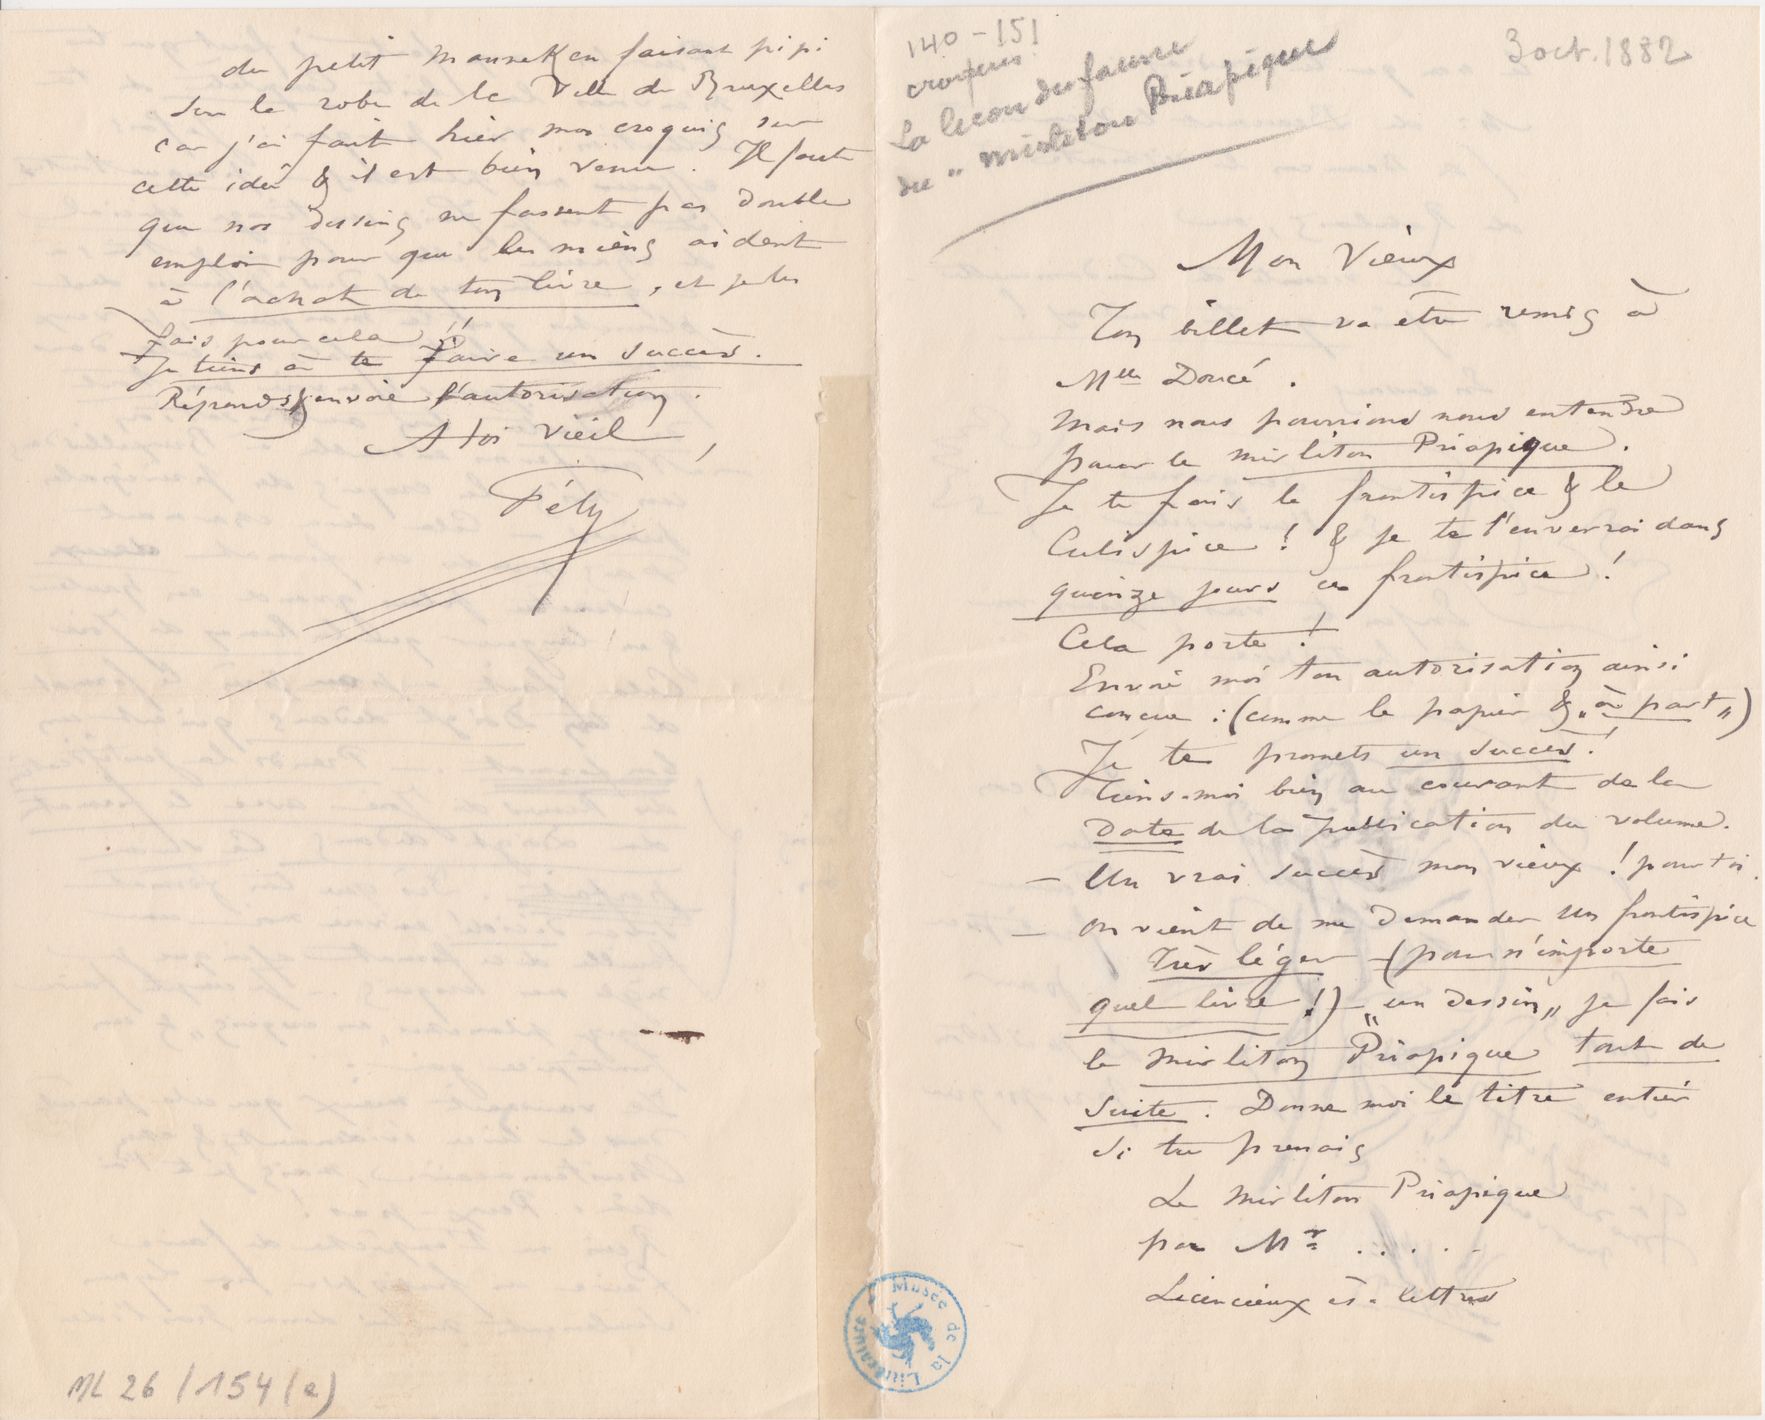 140-151
croquis
La leçon du faune
du " mirliton Priapique
3 oct. 1882
Mon Vieux
Ton billet va être remis à
Mlle Doucé.
Mais nous pourrions nous entendre
pour le mirliton Priapique.
Je te fais le frontispice & le
Culispice ! & je te l'enverrai dans
quinze jours ce frontispice !
Cela porte !
Envoie moi ton autorisation ainsi
conçue : (comme le papier & „à part")
Je te promets un succès !
Tiens-moi bien au courant de la
Date de la publication du volume.
— Un vrai succès mon vieux ! pour toi.
— On vient de me demander un frontispice
Très léger – (pour n'importe
quel livre !) – „un dessin" je fais
le Mirliton "Priapique tout de
suite. Donne moi le titre entier
si tu prenais
Le Mirliton Priapique
par Mr .....
Licencieux ès-lettres
du petit manneken faisant pipi
sur la robe de la Ville de Bruxelles
car j'ai fait hier mon croquis sur
cette idée & il est bien venu. Il faut
que nos dessins ne fassent pas double
emploi pour que les miens aident
à l'achat de ton livre, et je les
fais pour cela !!
Je tiens à te faire un succès.
Réponds & envoie l'autorisation.
A toi vieil,
Fély
ML 26/154(2)
Musée de la Littérature